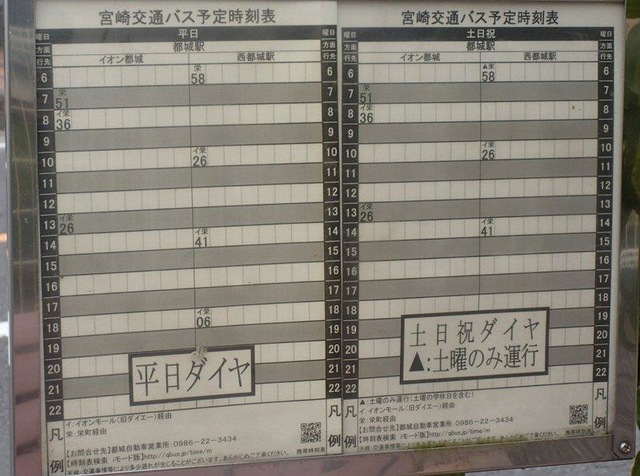 宮崎交通バス予定時刻表
平日
曜日
都城駅
方面
イオン都城
西都城駅
行先
6
栄
58
7
栄
51
8
イ栄
36
9
10
イ栄
26
11
12
13
イ栄
26
14
イ栄
41
15
16
17
18
イ栄
06
19
20
21
22
平日ダイヤ
凡例
イ:イオンモール(旧ダイエー)経由
栄:栄町経由
【お問合せ先】都城自動車営業所 0986-22-3434
【時刻表検索 iモード版】http://qbus.jp/time/m
携帯時刻表
宮崎交通バス予定時刻表
土日祝
曜日
都城駅
方面
イオン都城
西都城駅
行先
6
▲栄
58
7
栄
51
8
イ栄
36
9
10
イ栄
26
11
12
13
イ栄
26
14
イ栄
41
15
16
17
18
19
20
21
22
土日祝ダイヤ
▲:土曜のみ運行
凡例
▲:土曜のみ運行(土曜の学休日を含む)
イ:イオンモール(旧ダイエー)経由
栄:栄町経由
【お問合せ先】都城自動車営業所 0986-22-3434
【時刻表検索 iモード版】http://qbus.jp/time/m
携帯時刻表